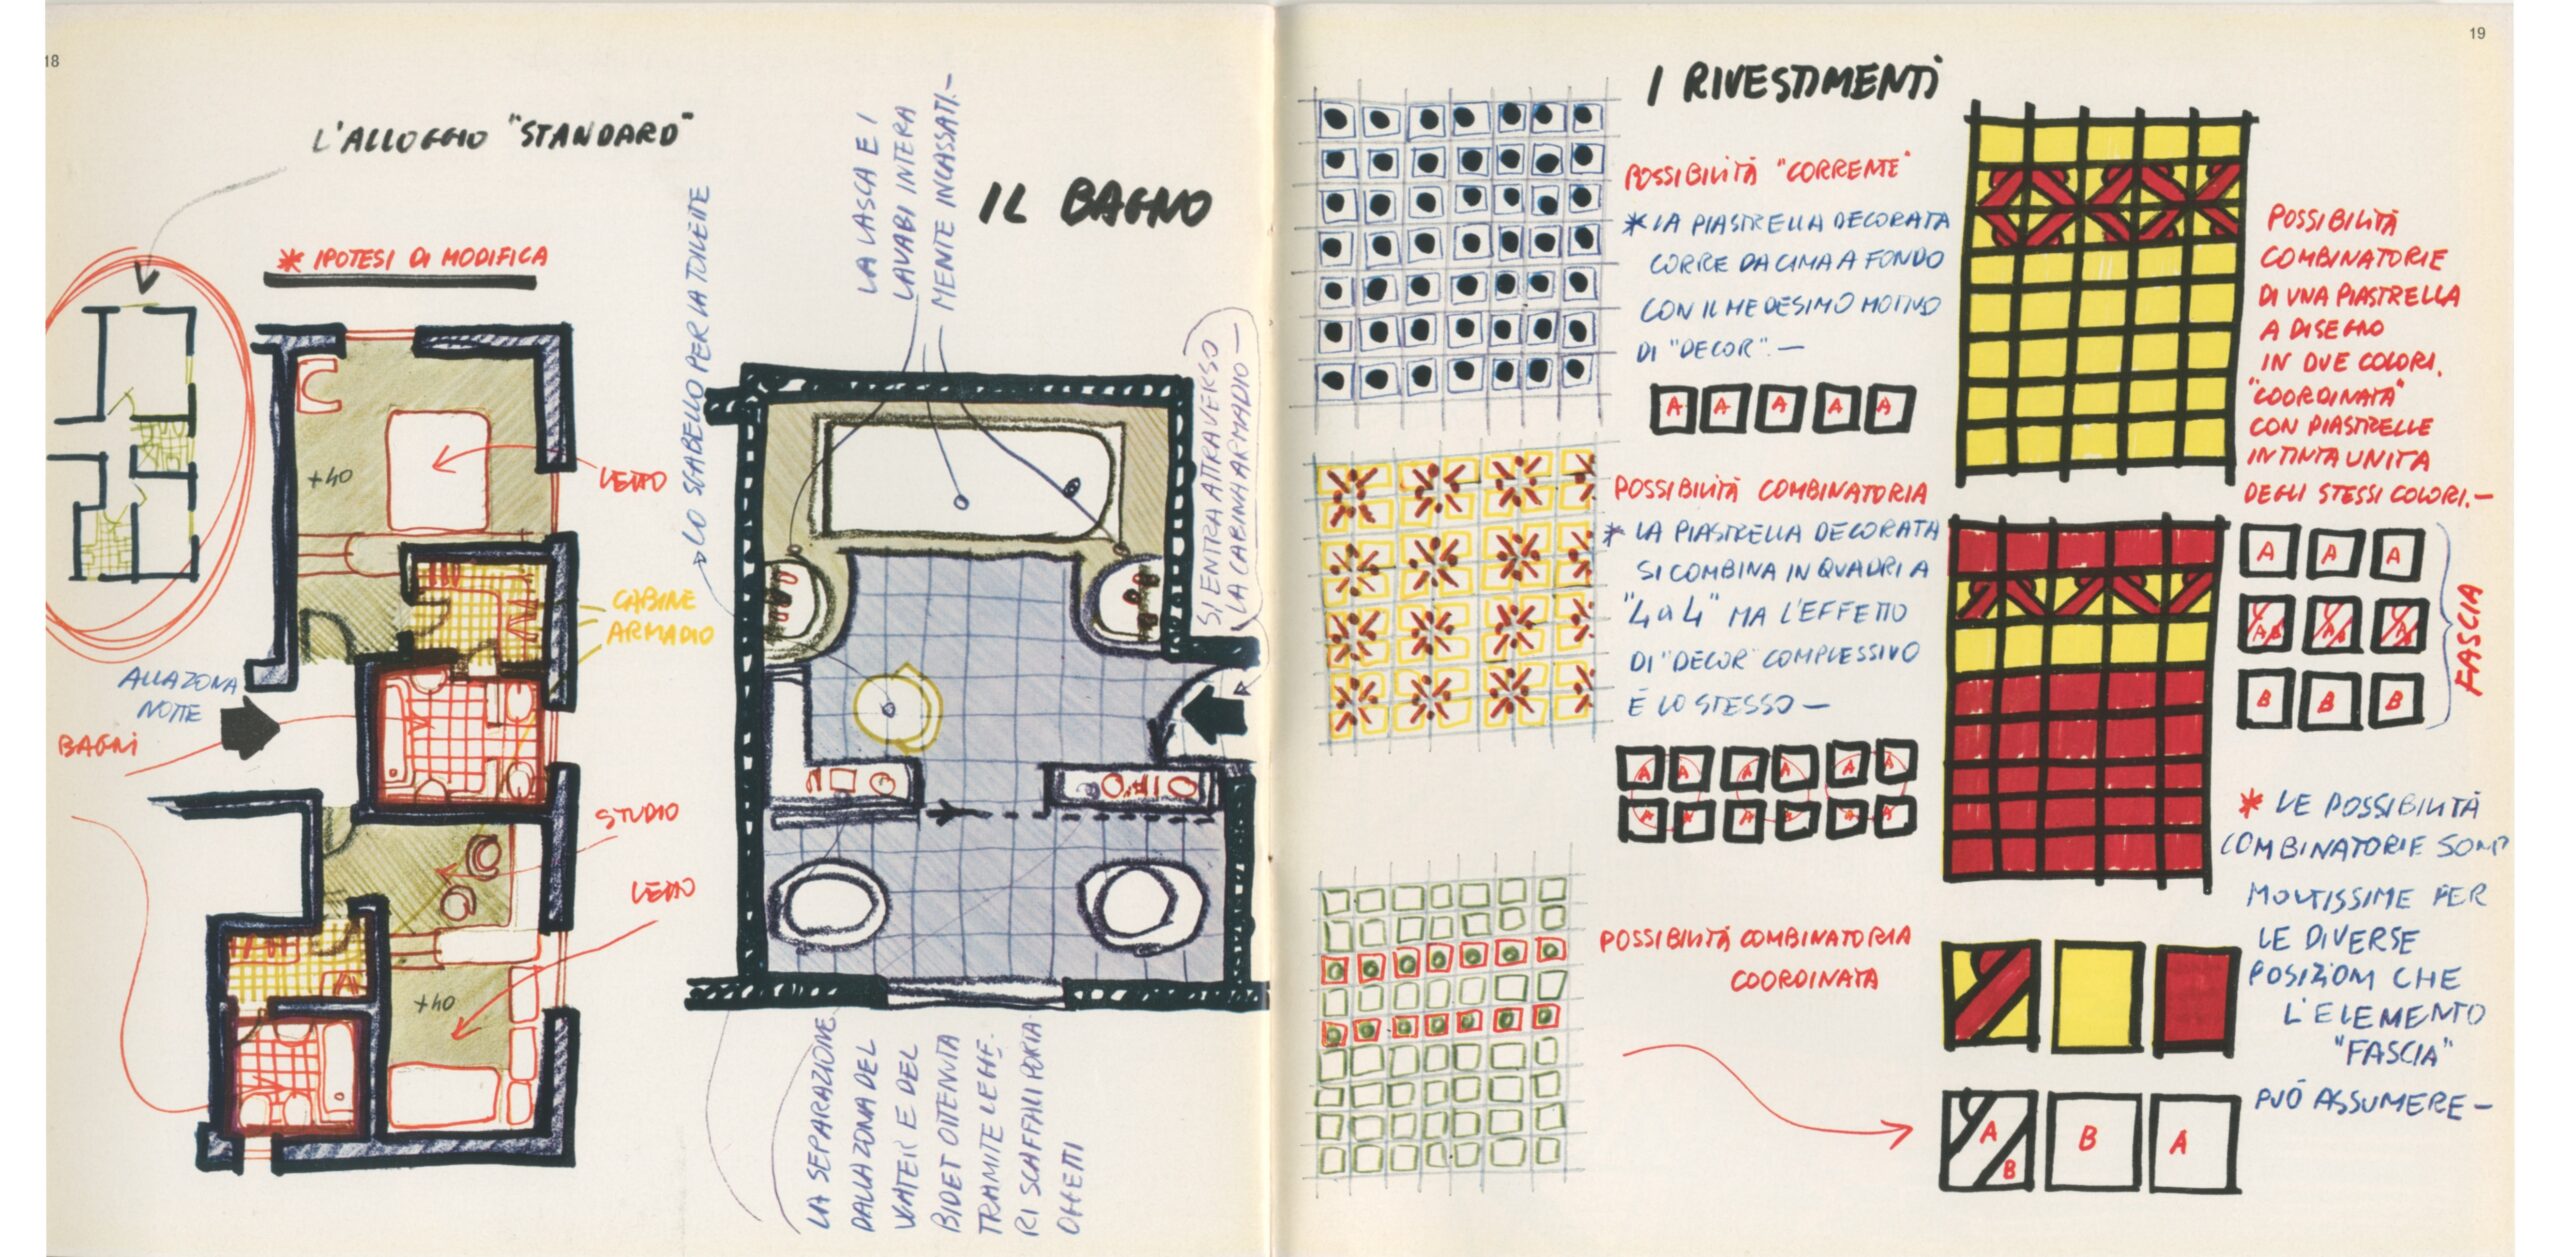 18
L'ALLOGGIO "STANDARD"
* IPOTESI DI MODIFICA
+40
LETTO
CABINE
ARMADIO
ALLA ZONA
NOTTE
BAGNI
STUDIO
LETTO
+40
IL BAGNO
LO SGABELLO PER LA TOILETTE
LA VASCA E I
LAVABI INTERA
MENTE INCASSATI.—
SI ENTRA ATTRAVERSO
LA CABINA ARMADIO —
LA SEPARAZIONE
DALLA ZONA DEL
WATER E DEL
BIDET OTTENUTA
TRAMITE LEGGE.
RI SCAFFALI PORTA.
OGGETTI
19
I RIVESTIMENTI
POSSIBILITÀ "CORRENTE"
* LA PIASTRELLA DECORATA
CORRE DA CIMA A FONDO
CON IL MEDESIMO MOTIVO
DI "DECOR".—
A A A A A
POSSIBILITÀ COMBINATORIA
* LA PIASTRELLA DECORATA
SI COMBINA IN QUADRI A
"4 a 4" MA L'EFFETTO
DI "DECOR" COMPLESSIVO
È LO STESSO —
A A A A A A
A A A A A A
POSSIBILITÀ COMBINATORIA
COORDINATA
POSSIBILITÀ
COMBINATORIE
DI UNA PIASTRELLA
A DISEGNO
IN DUE COLORI.
"COORDINATA"
CON PIASTRELLE
IN TINTA UNITA
DEGLI STESSI COLORI.—
A A A
A B A B A B
B B B
FASCIA
* LE POSSIBILITÀ
COMBINATORIE SONO
MOLTISSIME PER
LE DIVERSE
POSIZIONI CHE
L'ELEMENTO
"FASCIA"
PUÒ ASSUMERE —
A B B A